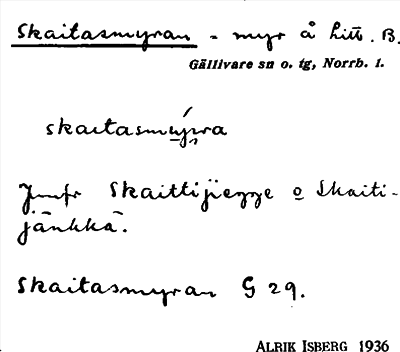 Skaitasmyran - myr å litt. B.
Gällivare sn o. tg, Norrb. l.
skaitasmýra
Jmfr Skaittijiegge o Skaiti-
jänkkä.
Skaitasmyran G 29.
ALRIK ISBERG 1936